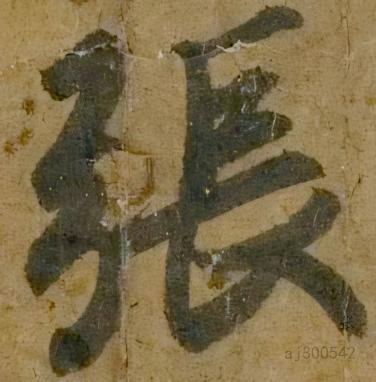 張
aj300542